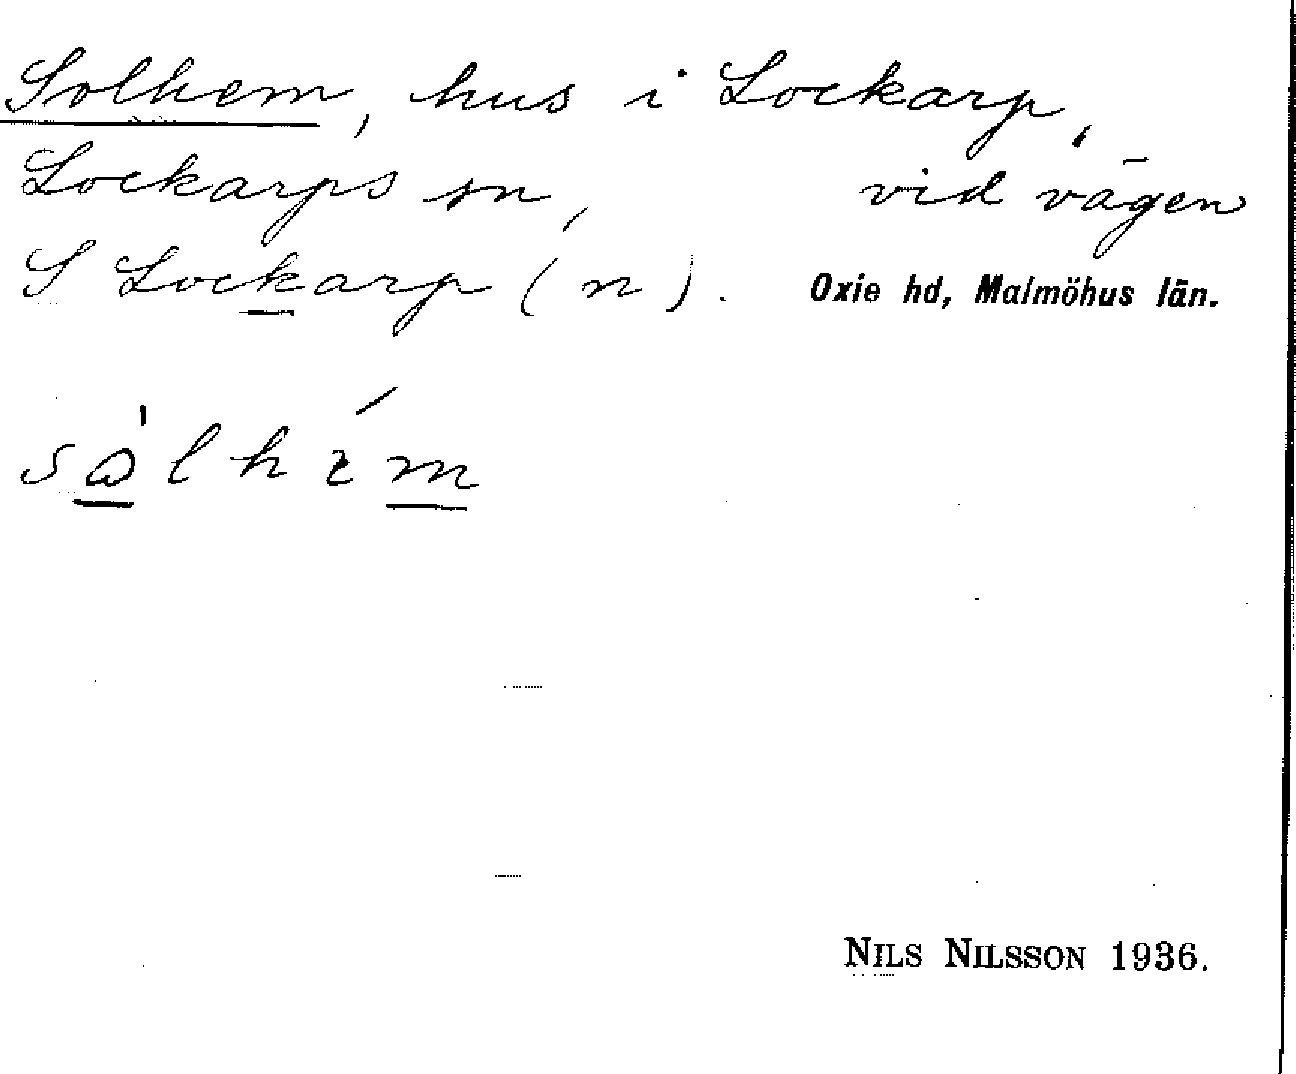 Solhem, hus i Lockarp,
Lockarps sn, vid vägen
S Lockarp (n). Oxie hd, Malmöhus län.
NILS NILSSON 1936.